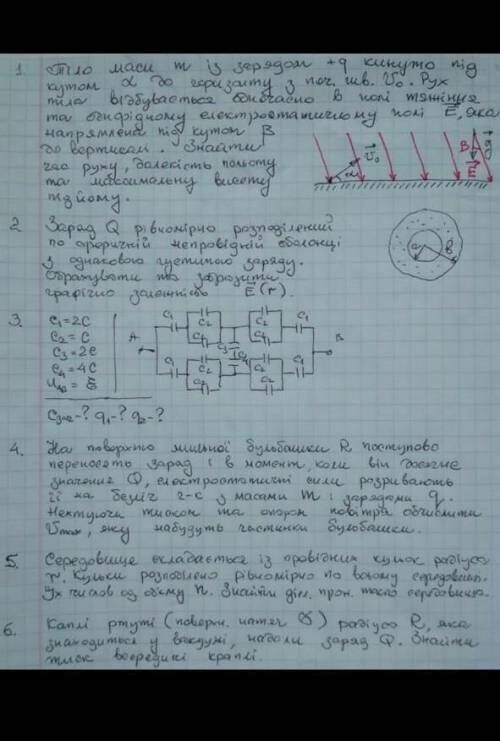 1. Тіло маси m із зарядом +q кинуто під
кутом α до горизонту з поч. шв. V₀. Рух
тіла відбувається одночасно в полі тяжіння
та однорідному електростатичному полі E⃗, яка
напрямлена під кутом β
до вертикалі. Знайти
час руху, далекість польоту
та максимальну висоту
підйому.
β g⃗
V⃗₀ α E⃗
2. Заряд Q рівномірно розподілений
по сферичній непровідній оболонці
з однаковою густиною заряду.
Обрахувати та зобразити
графічно залежність E⃗(r).
a b
3. C₁=2C
C₂=C
C₃=2C
C₄=4C
U_AB = ℰ
A C₁ C₂ C₂ C₁ B
C₃ C₄
C₁ C₂ C₂ C₁
C заг-? q₁-? q₂-?
4. На поверхню мильної бульбашки R поступово
переносять заряд і в момент, коли він досягне
значення Q, електростатичні сили розривають
її на безліч ч-к з масами m і зарядами q.
Нехтуючи тиском та опором повітря обчислити
Vmax, яку набудуть частинки бульбашки.
5. Середовище складається із провідних кульок радіуса
r. Кульки розподілено рівномірно по всьому середовищі.
Їх число в од. об'єму n. Знайти діел. прон. такого середовища.
6. Каплі ртуті (поверхн. натяг) радіуса R, яка
знаходиться у вакуумі, надали заряд Q. Знайти
тиск всередині краплі.